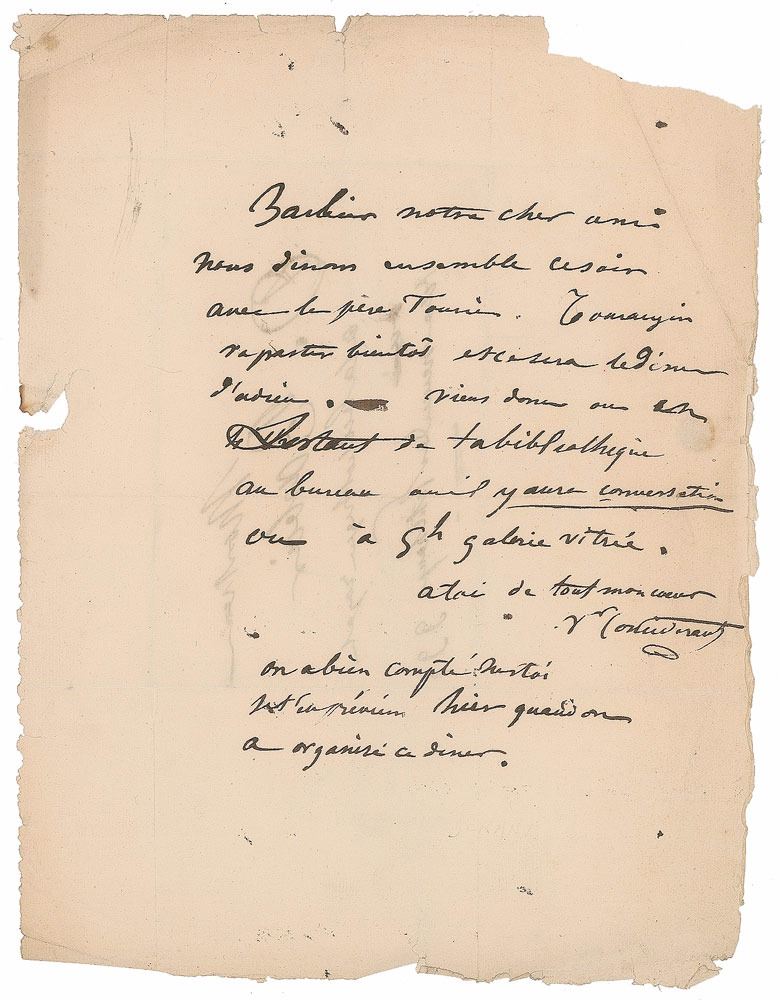 Barbier notre cher ami
nous dinons ensemble cesoir
avec le père . Tourangin
va partir bientôt et cesera lediner
d'adieu . — viens donc ou en
de tabibliothèque
au bureau ouil yaura conversation
ou à 5h galerie vitrée .
atoi de tout mon cœur
Vor Considerant
on abien compté surtoi
hier quand on
a organisé ce diner .